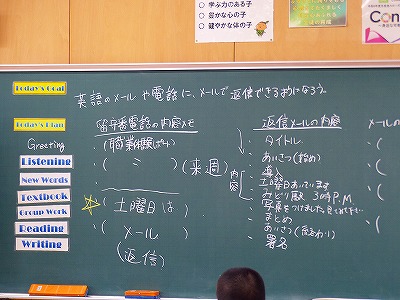 ○ 学ぶ力のある子
○ 豊かな心の子
○ 健やかな体の子
Con
Today's Goal
英語のメールや電話に、メールで返信できるようになろう。
Today's Plan
Greeting
Listening
New Words
Textbook
Group Work
Reading
Writing
留守番電話の内容メモ
・(職業体験
・( 〃 )(来週)
☆ 土曜日は
・( メール )
(返信)
返信メールの内容
・タイトル
・あいさつ(始め)
・導入
内容
・土曜日あいています
・みどり駅 3時P.M.
・まとめ
・あいさつ(終わり)
・署名
メールの
・(
・(
・(